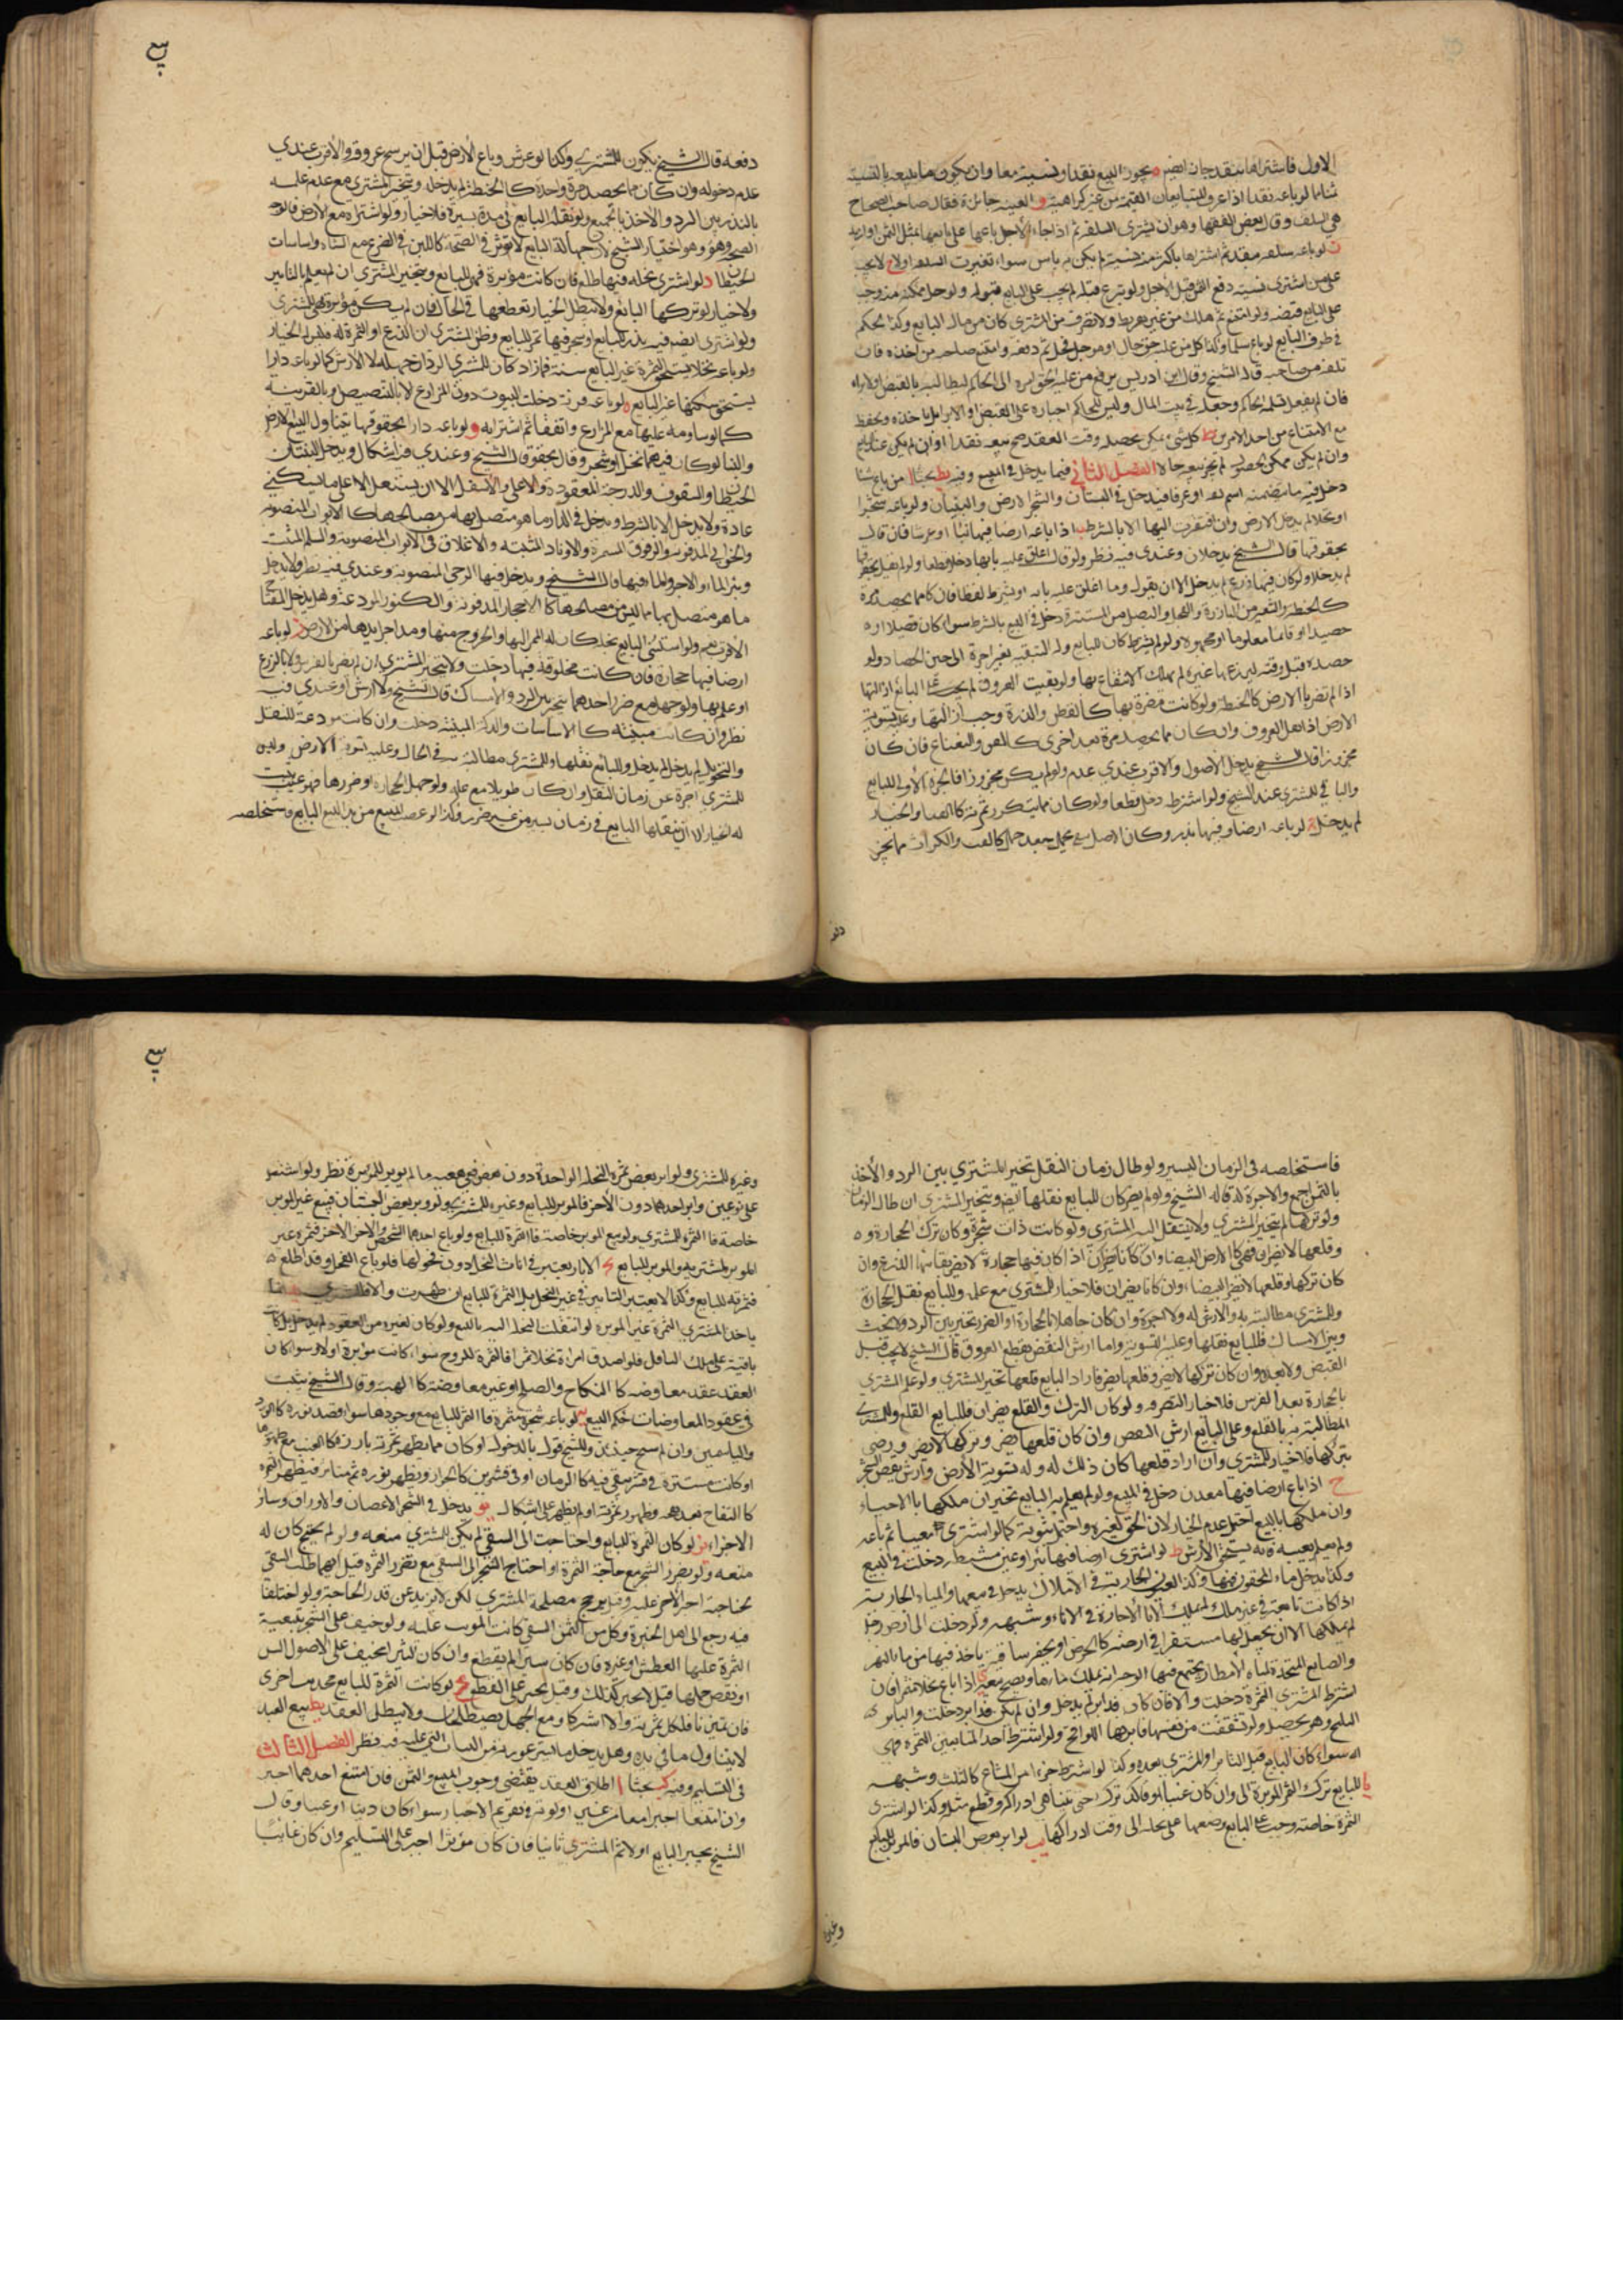 الاول فاشتراها بنقد جاز ايضا ه يجوز البيع نقدا ونسية معا وان يكون ما يبيعه بالنسية
ثمنا ما لو باعه نقدا اذا عرف المتبايعان القيمة من غير كراهية و العينة جائزة فقال صاحب الصحاح
هي السلف وقال بعض الفقها وهو ان يشتري السلعة ثم اذا جاء الاجل باعها على بايعها بمثل الثمن او ازيد
ز لو باعه سلعة بنقد ثم اشتراها باكثر منه نسية لم يكن به باس سواء تغيرت السلعة اولا ح لا يجب
على من اشترى نسية دفع الثمن قبل الاجل ولو تبرع قبله لم يجب على البايع قبوله ولو حل مكنه منه وجب
على البايع قبضه ولو امتنع ثم هلك من غير تفريط ولا تصرف من المشتري كان من مال البايع وكذا الحكم
في طرف البايع لو باع سلما وكذا كل من عليه حق حال او مؤجل فحل ثم دفعه وامتنع صاحبه من اخذه فان
تلفه من صاحبه قاله الشيخ وقال ابن ادريس يرفع من عليه الحق امره الى الحاكم ليطالبه بالقبض او الابراء
فان لم يفعل قبله الحاكم وجعله في بيت المال وليس للحاكم اجباره على القبض او الابراء بل ياخذه ويحفظه
مع الامتناع من احد الامرين ط كل شيء يمكن تحصيله وقت العقد صح بيعه نقدا وان لم يكن عند البايع
وان لم يكن ممكن الحصول لم يجز بيعه حالا الفصل الثاني فيما يدخل في المبيع وفيه يط بحثا ا من باع شيئا
دخل فيه ما يتضمنه اسمه لغة او عرفا فيدخل في البستان والشجر الارض والبنيان ولو باعه شجرا
او نخلا لم يدخل الارض وان افتقرت اليها الا بالشرط ب اذا باعه ارضا فيها بناء او غرسا فان قال
بحقوقها قال الشيخ يدخلان وعندي فيه نظر ولو قال وما اغلق عليه بابها دخل قطعا ولو لم يقل بحقوقها
لم يدخلا ولو كان فيها زرع لم يدخل الا ان يقول وما اغلق عليه بابه او يشترط لفظا فان كان مما يحصد مرة
كالحنطة والشعير من البارزة والفجل والبصل من المستترة دخل في البيع بالشرط سواء كان قصيلا او
حصيدا او قائما معلوما او مجهولا ولو لم يشرط كان للبايع وله التبقية بغير اجرة الى حين الحصاد ولو
حصده قبل وقته ليزرعها غيره لم يملك الانتفاع بها ولو بقيت العروق لم يجب على البايع ازالتها
اذا لم تضر بالارض كالحنطة ولو كانت مضرة بها كالقطن والذرة وجب ازالتها وعليه تسوية
الارض اذا قلع العروق وان كان مما يحصد مرة بعد اخرى كالقصب والنعناع فان كان
مجزوزا قال الشيخ يدخل الاصول والاقرب عندي عدمه ولو لم يكن مجزوزا فالجزة الاولى للبايع
والباقي للمشتري عند الشيخ ولو اشترط دخل قطعا ولو كان مما يتكرر ثمرته كالقثا والخيار
لم يدخل ج لو باعه ارضا وفيها بذر وكان لاصل يبقى يحمل بعد حمل كالقت والكراث مما يجز
دفعة
يبع
دفعه قال الشيخ يكون للمشتري وكذا لو غرس وباع الارض قبل ان يرسخ عروقه والاقرب عندي
عدم دخوله وان كان مما يحصد مرة واحدة كالحنطة لم يدخل ويتخير المشتري مع عدم علمه
بالبذر بين الرد والاخذ بالجميع ولو نقله البايع في مدة يسيرة فلا خيار ولو اشتراه مع الارض فالوجه
الصحة وهو اختيار الشيخ لان جهالة البايع لا تؤثر في الصحة كاللبن في الضرع مع الشاة واساسات
الحيطان د لو اشترى نخلة فيها طلع فان كانت مؤبرة فهي للبايع ويتخير المشتري ان لم يعلم بالتابير
ولا خيار لو تركها البايع ولا يبطل الخيار بقطعها في الحال فان لم يكن مؤبرة فهي للمشتري
ولو اشترى ارضا فيه بذر للبايع او شجر فيها ثمر للبايع وظن المشتري ان الزرع او الثمرة له فله الخيار
ولو باعه نخلا يستحق الثمرة غير البايع سنة فما زاد كان للمشتري الرد ان جهله لا الارش كما لو باعه دارا
يستحق سكناها غير البايع ه لو باعه قرية دخلت البيوت دون المزارع الا بالتنصيص او بالقرينة
كما لو ساومه عليها مع المزارع واتفقا ثم اشترا به و لو باعه دارا بحقوقها يتناول البيع الارض
والبنا لو كان فيها نخل او شجر وقال بحقوقها قال الشيخ وعندي فيه اشكال ويدخل البنيان
الحيطان والسقوف والدرجة المعقودة والاعلى والاسفل الا ان يستقل الاعلى بما يسكنه
عادة ولا يدخل الا بالشرط ويدخل في الدار ما هو متصل بها من مصالحها كالابواب المنصوبة
والخوابي المدفونة والرفوف المسمرة والاوتاد المثبتة والاغلاق في الابواب المنصوبة والسلم المثبت
وبئر الماء والاجر والماء فيها قال الشيخ ويدخل فيها الرحى المنصوبة وعندي فيه نظر ولا يدخل
ما هو متصل بها مما ليس من مصالحها كالاحجار المدفونة والكنوز المودعة وهل يدخل المفتاح
الاقرب نعم ولو استثنى البايع نخلة كان له الممر اليها والخروج منها ومدا جرايدها من الارض ز لو باعه
ارضا فيها حجارة فان كانت مخلوقة فيها دخلت ولا يتخير المشتري ان لم يضر بالغرس ولا بالزرع
او علم بها ولو جهلها مع ضرر احدهما تخير بين الرد والامساك قال الشيخ ولا ارش وعندي فيه
نظر وان كانت مبنية كالاساسات والدكة المبنية دخلت وان كانت مودعة للنقل
والتحويل لم يدخل وللبايع نقلها وللمشتري مطالبته في الحال وعليه تسوية الارض وليس
للمشتري اجرة عن زمان النقل وان كان طويلا مع علمه ولو جهل الحجارة او ضررها فهو عيب يثبت
له الخيار الا ان ينقلها البايع في زمان يسير من غير ضرر وكذا لو غصب المبيع من يد البايع فاستخلصه
يبع
فاستخلصه في الزمان اليسير ولو طال زمان النقل تخير المشتري بين الرد والاخذ
بالثمن اجمع والاجرة له قاله الشيخ ولو لم يضر كان للبايع نقلها ايضا ويتخير المشتري ان طال الزمان
ولو تركها لم يتخير المشتري ولا ينتقل الى المشتري ولو كانت ذات شجرة وكان ترك الحجارة
وقلعها لا يضران فهي كالارض البيضا وان كانا يضران اذا كان فيها حجارة لا يضر بقاؤها الزرع وان
كان تركها وقلعها لا يضر البيضاء وان كانا يضران فلا خيار للمشتري مع علمه وللبايع نقل الحجارة
وللمشتري مطالبته به والارش له ولا اجرة وان كان جاهلا بالحجارة او الضرر تخير بين الرد ولا بحث
وبين الامساك فللبايع نقلها وعليه التسوية واما ارش النقض بقطع العروق قال الشيخ لا يجب قبل
القبض ولا بعده وان كان تركها لا يضر وقلعها يضر فاراد البايع قلعها تخير المشتري ولو علم المشتري
بالحجارة بعد الغرس فلا خيار للتصرف ولو كان الترك والقلع يضران فللبايع القلع وللمشتري
المطالبة به بالقلع وعلى البايع ارش النقص وان كان قلعها يضر وتركها لا يضر ورضي
بتركها فلا خيار للمشتري وان اراد قلعها كان ذلك له وله تسوية الارض وارش نقص الشجر
ح اذا باع ارضا فيها معدن دخل في المبيع ولو لم يعلم به البايع تخير ان ملكها بالاحياء
وان ملكها بالبيع احتمل عدم الخيار لان الحق لغيره واحتمل ثبوته كما لو اشترى معيبا ثم باعه
ولم يعلم بعيبه فانه يستحق الارش ط لو اشترى ارضا فيها بئر او عين مستنبطة دخلت في البيع
وكذا يدخل ماء المحقون فيها وكذا العيون الجارية في الاملاك يدخل في بيعها والمياه الجارية
اذا كانت نابعة في غير ملك لم يملك الا بالاجازة في الاناء وشبهه ولو دخلت الى ارض رجل
لم يملكها الا ان يجعل لها مستقرا في ارضه كالحوض او يحفر ساقية ياخذ فيها من ماء النهر
والصانع المتخذة لمياه الامطار يجتمع فيها الوجه انه يملك ماؤها ويصح بيعه ي اذا باع نخلا مثمرا فان
اشترط المشتري الثمرة دخلت والا فان كان قد ابر لم يدخل وان لم يكن قد ابر دخلت والتابير
التلقيح وهو يحصل ولو تشققت من نفسها فابرها اللواقح ولو اشترط احد المتبايعين الثمرة فهي
له سواء كان البايع قبل التابير او المشتري بعده وكذا لو اشترط جزءا من المشاع كالثلث وشبهه
يا للبايع ترك الثمر المؤبرة الى وان كان عنبا فكذلك ترك حتى يتناهى ادراكه وقطع مثله وكذا لو اشترى
الثمرة خاصة وجب على البايع وضعها على نخله الى وقت ادراكها يب لو ابر بعض البستان فالمؤبر للبايع
وغيره
وغيره للمشتري ولو ابر بعض ثمرة النخلة الواحدة دون بعض ففي تبعية ما لم يؤبر للمؤبرة نظر ولو اشتمل
على نوعين وابر احدهما دون الاخر فالمؤبر للبايع وغيره للمشتري ولو ابر بعض البستان فبيع غير المؤبر
خاصة فالثمرة للمشتري ولو بيع المؤبر خاصة فالثمرة للبايع ولو باع احدهما لشخص والاخر لاخر فثمرة غير
المؤبر لمشتريه والمؤبر للبايع يج الابار يعتبر في اناث النخل دون فحولها فلو باع الفحل وقد اطلع
فثمرته للبايع وكذا لا يعتبر التابير في غير النخل بل الثمرة للبايع ان ظهرت والا فللمشتري
ياخذ المشتري الثمرة غير المؤبرة لو انتقلت النخلة اليه بالبيع ولو كان لغيره من العقود لم يدخل بل كانت
باقية على ملك الناقل فلو اصدق امراة نخلا مثمرا فالثمرة للزوج سواء كانت مؤبرة اولا وسواء كان
العقد عقد معاوضة كالنكاح والصلح او غير معاوضة كالهبة وقال الشيخ يثبت
في عقود المعاوضات حكم البيع يه لو باعه شجرة مثمرة فالثمر للبايع مع وجودها سواء قصد نوره كالورد
والياسمين وان لم يتفتح حينئذ وللشيخ قول بالدخول او كان مما يظهر ثمرته بارزة كالعنب مع ظهورها
او كانت مستترة في قشر يبقى فيه كالرمان او في قشرين كالجوز او يظهر نوره ثم يتناثر فيظهر الثمرة
كالتفاح بعد عقده وظهور ثمرته او لم يظهر على اشكال يو يدخل في الشجر الاغصان والاوراق وسائر
الاجزاء يز لو كان الثمرة للبايع واحتاجت الى السقي لم يكن للمشتري منعه ولو لم يحتج كان له
منعه ولو تضرر الشجر مع حاجة الثمرة او احتاج الشجر الى السقي مع تضرر الثمرة قيل ايهما طلب السقي
لحاجته اجبر الاخر عليه وقيل يرجح مصلحة المشتري لكن لا يزيد عن قدر الحاجة ولو اختلفا
فيه رجع الى اهل الخبرة وكل من التمس السقي كانت المؤنة عليه ولو خيف على الشجر بتبقية
الثمرة عليها العطش او غيره فان كان يسيرا لم يقطع وان كان كثيرا مخيف على الاصول اليبس
او نقص حملها قيل لا يجبر كذلك وقيل يجبر على القطع يح لو كانت الثمرة للبايع فحدثت اخرى
فان تميزت فلكل ثمرته والا اشتركا ومع الجهل يصطلحان ولا يبطل العقد يط بيع العبد
لا يتناول ما في يده وهل يدخل ما يستر عورته من الثياب التي عليه فيه نظر الفصل الثالث
في التسليم وفيه بحثا ا اطلاق العقد يقتضي وجوب المبيع والثمن فان امتنع احدهما اجبر
وان امتنعا اجبرا معا من غير اولوية في تقديم الاجبار سواء كان دينا او عينا وقال
الشيخ يجبر البايع اولا ثم المشتري ثانيا فان كان مؤثرا اجبر على التسليم وان كان غائبا